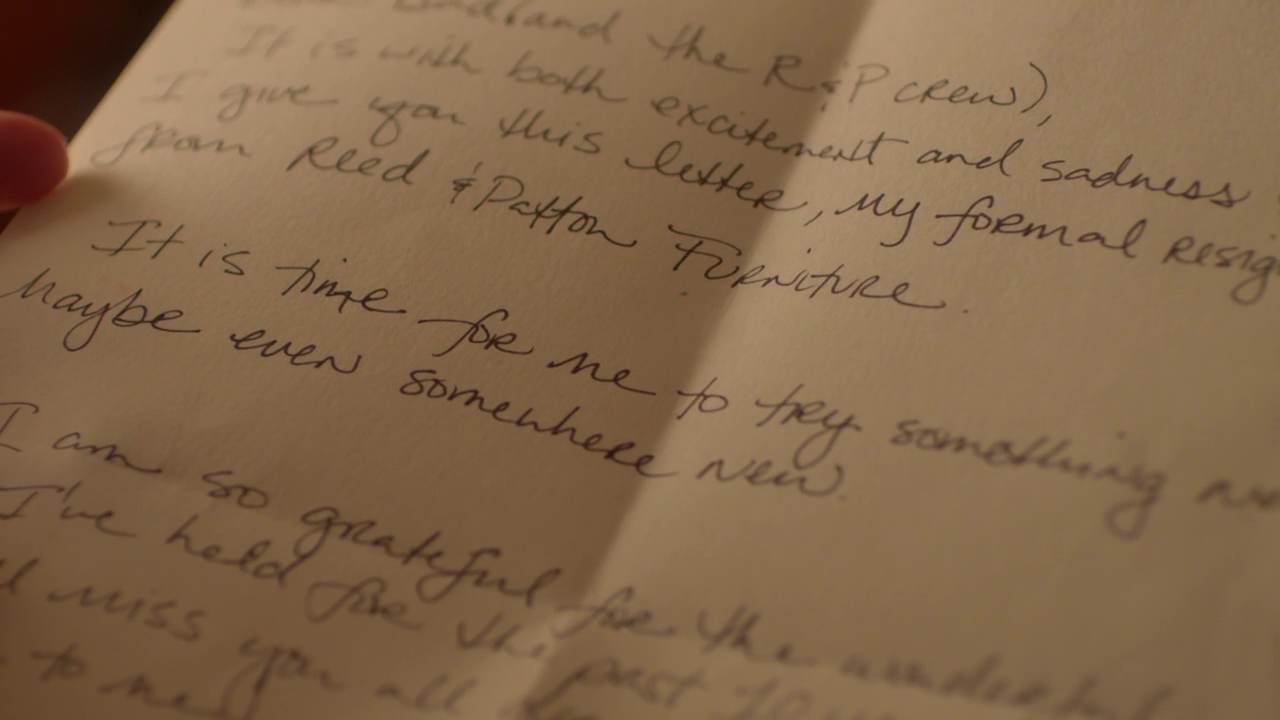 Brad (and the R & P crew),
It is with both excitement and sadness
I give you this letter, my formal resig
from Reed & Patton Furniture.
It is time for me to try something
Maybe even somewhere new.
I am so grateful for the wonderful
I've held for the past 10
miss you all
to me